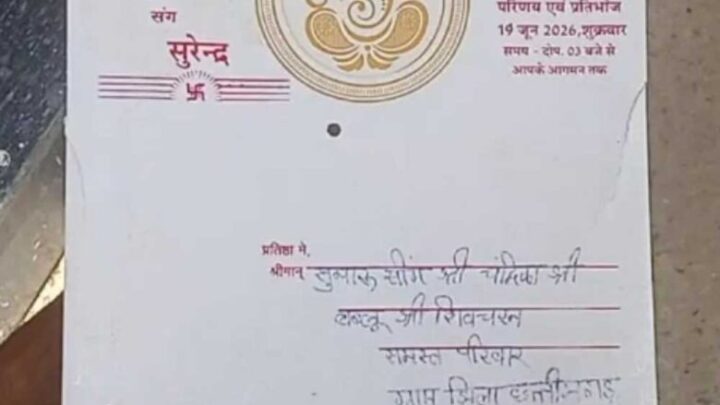 संग
सुरेन्द्र
परिणय एवं प्रतिभोज
19 जून 2026,शुक्रवार
समय - दोप. 03 बजे से
आपके आगमन तक
प्रतिष्ठा में,
श्रीमान् सींग श्री चंद्रिका श्री
श्री शिवचरन
समस्त परिवार
ग्राम जिला छत्तीसगढ़